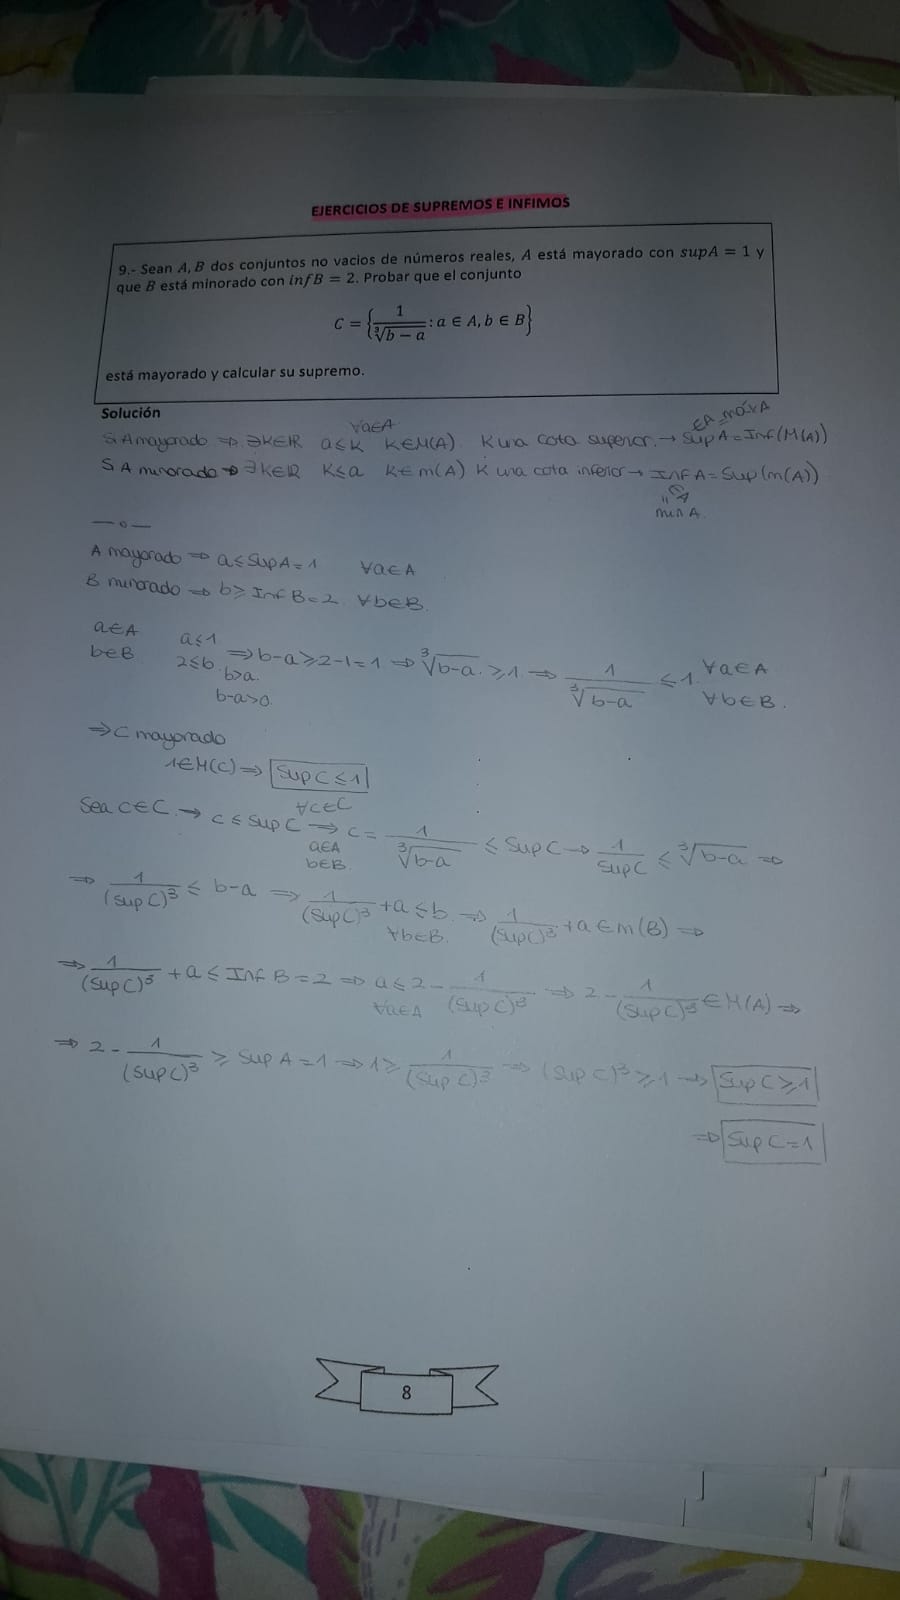 EJERCICIOS DE SUPREMOS E INFIMOS
9.- Sean A, B dos conjuntos no vacios de números reales, A está mayorado con supA = 1 y
que B está minorado con infB = 2. Probar que el conjunto
C = {1/∛(b − a) : a ∈ A, b ∈ B}
está mayorado y calcular su supremo.
Solución
S A mayorado ⇒ ∃K∈ℝ a≤K ∀a∈A K∈M(A) K una cota superior → Sup A = Inf(M(A)) ∈A = MÁXA
S A minorado ⇒ ∃K∈ℝ K≤a K∈m(A) K una cota inferior → Inf A = Sup(m(A))
"∈A
min A.
—o—
A mayorado ⇒ a≤Sup A = 1 ∀a∈A
B minorado ⇒ b≥Inf B = 2 ∀b∈B.
a∈A a≤1
b∈B 2≤b ⇒ b-a≥2-1=1 ⇒ ∛(b-a) ≥1 ⇒ 1/∛(b-a) ≤1 ∀a∈A ∀b∈B.
b>a.
b-a>0.
⇒ C mayorado
1∈M(C) ⇒ Sup C≤1
Sea c∈C → c≤Sup C ∀c∈C ⇒ c = 1/∛(b-a) ≤ Sup C → 1/Sup C ≤ ∛(b-a) ⇒
a∈A
b∈B.
⇒ 1/(Sup C)³ ≤ b-a ⇒ 1/(Sup C)³ + a ≤ b ∀b∈B. ⇒ 1/(Sup C)³ + a ∈ m(B) ⇒
⇒ 1/(Sup C)³ + a ≤ Inf B = 2 ⇒ a ≤ 2 - 1/(Sup C)³ ∀a∈A ⇒ 2 - 1/(Sup C)³ ∈ M(A) ⇒
⇒ 2 - 1/(Sup C)³ ≥ Sup A = 1 ⇒ 1 ≥ 1/(Sup C)³ ⇒ (Sup C)³ ≥ 1 ⇒ Sup C ≥ 1
⇒ Sup C = 1
8